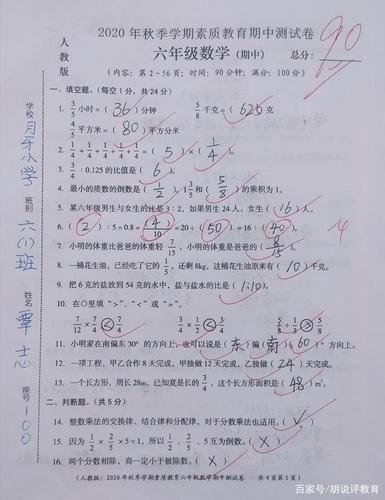 人教版
2020年秋季学期素质教育期中测试卷
六年级数学(期中) 总分:
90
(内容:第2-56页;时间:90分钟;满分:100分)
学校 月牙小学 班别 六(1)班 姓名 覃志 座号 100
一、填空题。(每空1分,共24分)
1. 3/5小时=(36)分钟 5/8千克=(625)克
4/5平方米=(80)平方分米
2. 1/4+1/4+1/4+1/4+1/4=(5)×(1/4)。
3. 3/4:0.125的比值是(6)。
4. 最小的质数的倒数是(1/2),1 3/5和(5/8)的乘积为1。
5. 某六年级男生与女生的比是3:2,如果男生24人,女生(16)人。
6. (2):5=0.8=(4)/10=20÷(50)=16:(40)。
-4
7. 小明的体重比爸爸的体重轻7/15,小明的体重是爸爸的(8/15)。
8. 一桶花生油,已经吃了它的1/5,还剩8kg,这桶花生油原来有(10)千克。
9. 把6克的盐放到54克的水中,盐与盐水的比是(1:10)。
10. 在○里填“>”、“<”或“=”。
7/12×7/4<7/4 3/4×1/2<3/4 5/8÷1/3>5/8
11. 小明家在南偏东30°的方向上,也可以说是(东)偏(南)(60)°方向上。
12. 一项工程,甲乙合作8天完成,甲独做12天完成,乙独做(24)天完成。
13. 一个长方形,周长28m,已知宽是长的3/4,这个长方形面积是(48)m²。
二、判断题。(共5分)
14. 整数乘法的交换律、结合律和分配律,对于分数乘法也适用。(✓)
15. 因为1/2×2/5×5=1,所以1/2、2/5、5互为倒数。(X)
16. 两个分数相除,商一定小于被除数。(X)
(人教版:2020年秋季学期素质教育六年级数学期中测试卷 共4页第1页)
百家号/胡说评教育